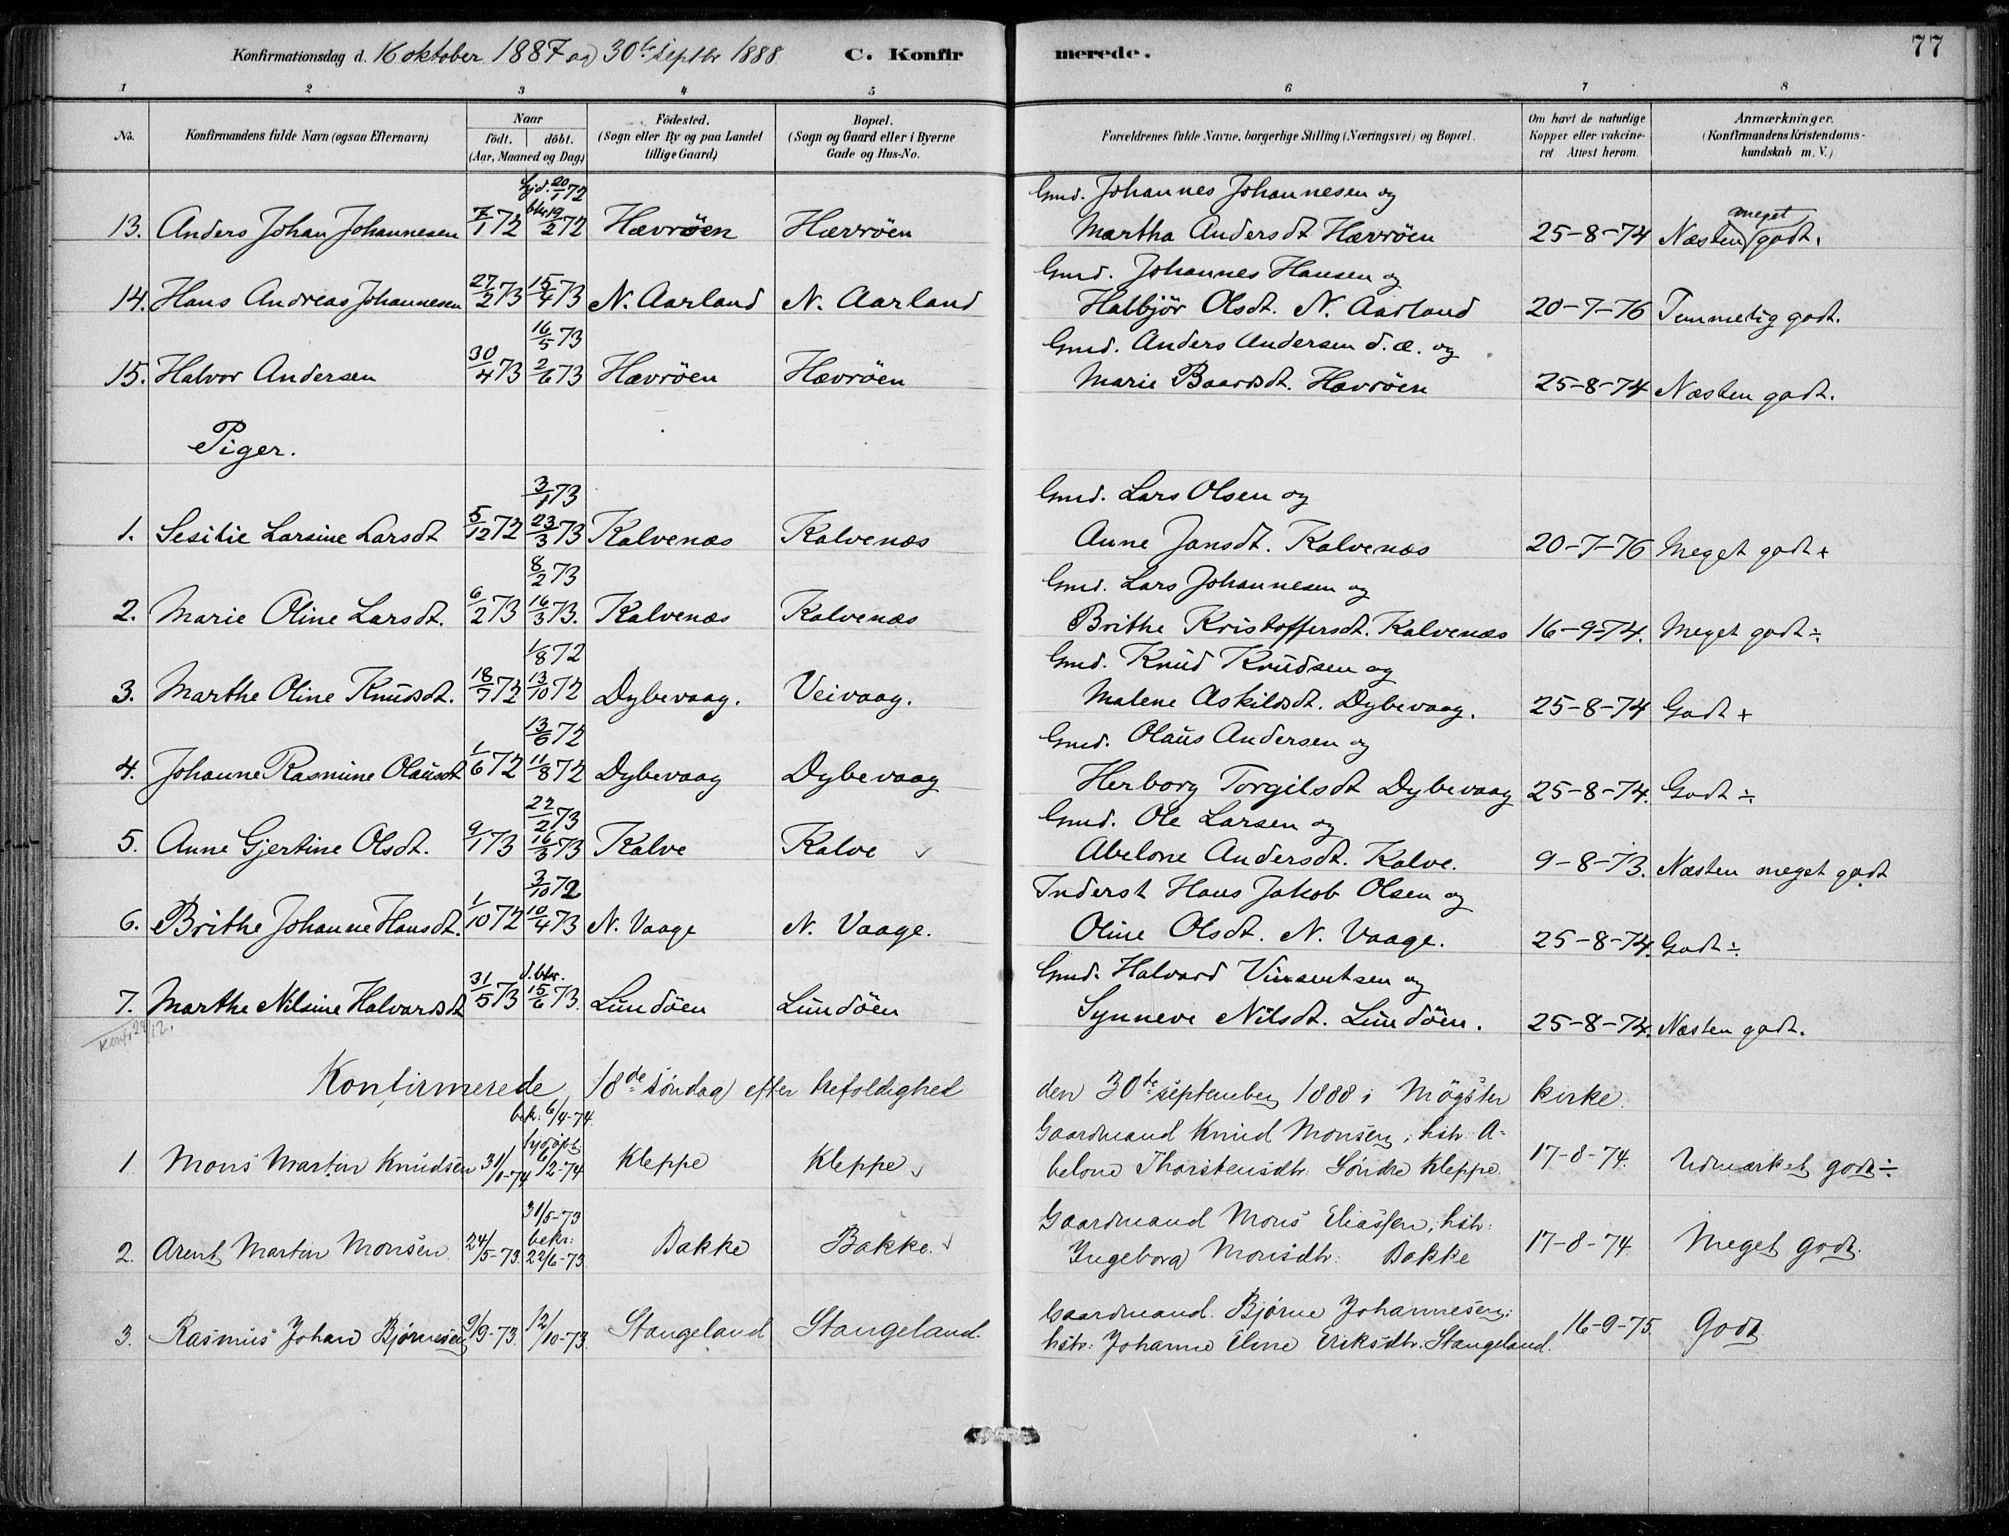 77
Konfirmationsdag d. 16 oktober 1887 og 30te septbr 1888. C. Konfirmerede.
1 2 3 4 5 6 7 8
No. Konfirmandens fulde Navn (ogsaa Efternavn) Naar født. døbt. (Aar, Maaned og Dag) Födested. (Sogn eller By og paa Landet tillige Gaard) Bopæl. (Sogn og Gaard eller i Byerne Gade og Hus-No. Forældrenes fulde Navne, borgerlige Stilling (Næringsvei) og Bopæl. Om havt de naturlige Kopper eller vakcineret Attest herom. Anmærkninger. (Konfirmandens Kristendomskundskab m. V.)
Hjd. 20/1 72 Gmd. Johannes Johannesen og
13. Anders Johan Johannesen 7/1 72 19/2 72 Hævröen Hævröen Martha Andersdt Hævröen 25-8-74 Næsten meget godt.
Gmd. Johannes Hansen og
14. Hans Andreas Johannesen 27/2 73 15/4 73 N. Aarland N. Aarland Halbjör Olsdt. N. Aarland 20-7-76 Temmelig godt.
16/5 73 Gmd. Anders Andersen d.æ. og
15. Halvor Andersen 30/4 73 2/6 73 Hævröen Hævröen Marie Baardsdt. Hævröen 25-8-74 Næsten godt.
Piger.
3/1 73 Gmd. Lars Olsen og
1. Sesilie Larsine Larsdt 5/12 72 23/3 73 Kalvenæs Kalvenæs Anne Jansdt. Kalvenæs 20-7-76 Meget godt +
8/2 73 Gmd. Lars Johannesen og
2. Marie Oline Larsdt. 6/2 73 16/3 73. Kalvenæs Kalvenæs Brithe Kristoffersdt. Kalvenæs 16-9-74. Meget godt ÷
1/8 72 Gmd. Knud Knudsen og
3. Marthe Oline Knudsdt. 18/7 72 13/10 72 Dybevaag. Veivaag. Malene Askildsdt. Dybevaag. 25-8-74 Godt +
13/6 72 Gmd. Olaus Andersen og
4. Johanne Rasmine Olausdt 1/6 72 11/8 72 Dybevaag Dybevaag Herborg Torgilsdt Dybevaag 25-8-74. Godt ÷
22/2 73 Gmd. Ole Larsen og
5. Anne Gjertine Olsdt. 9/1 73 16/3 73 Kalve Kalve Abelone Andersdt. Kalve. 9-8-73. Næsten meget godt
3/10 72 Inderst Hans Jakob Olsen og
6. Brithe Johanne Hansdt. 1/10 72 10/4 73 N. Vaage N. Vaage. Oline Olsdt. N. Vaage. 25-8-74. Godt ÷
Gmd. Halvard Vinsentsen og
7. Marthe Nilsine Halvardsdt 31/5 73 15/6 73. Lundöen Lundöen Synneve Nilsdt. Lundöen. 25-8-74. Næsten godt.
Konfirmerede 18de søndag efter trefoldighed den 30te september 1888 i Møgster kirke.
bekr: 6/4-74. Gaardmand Knud Monsen, hstr. A-
1. Mons Martin Knudsen 31/1-74 6/2-74 Kleppe Kleppe belone Thorstensdtr. Søndre Kleppe. 17-8-74. Udmærket godt ÷
31/5-73 Gaardmand Mons Eliassen, hstr:
2. Arent Martin Monsen 24/5-73. bekr: 22/6-73. Bakke Bakke. Ingeborg Monsdtr: Bakke 17-8-74. Meget godt.
Gaardmand. Bjørne Johannesen,
3. Rasmus Johan Bjørnesen 9/9-73. 12/10-73. Stangeland Stangeland. hstr: Johanne Eline Eriksdtr. Stangeland. 16-9-75. Godt